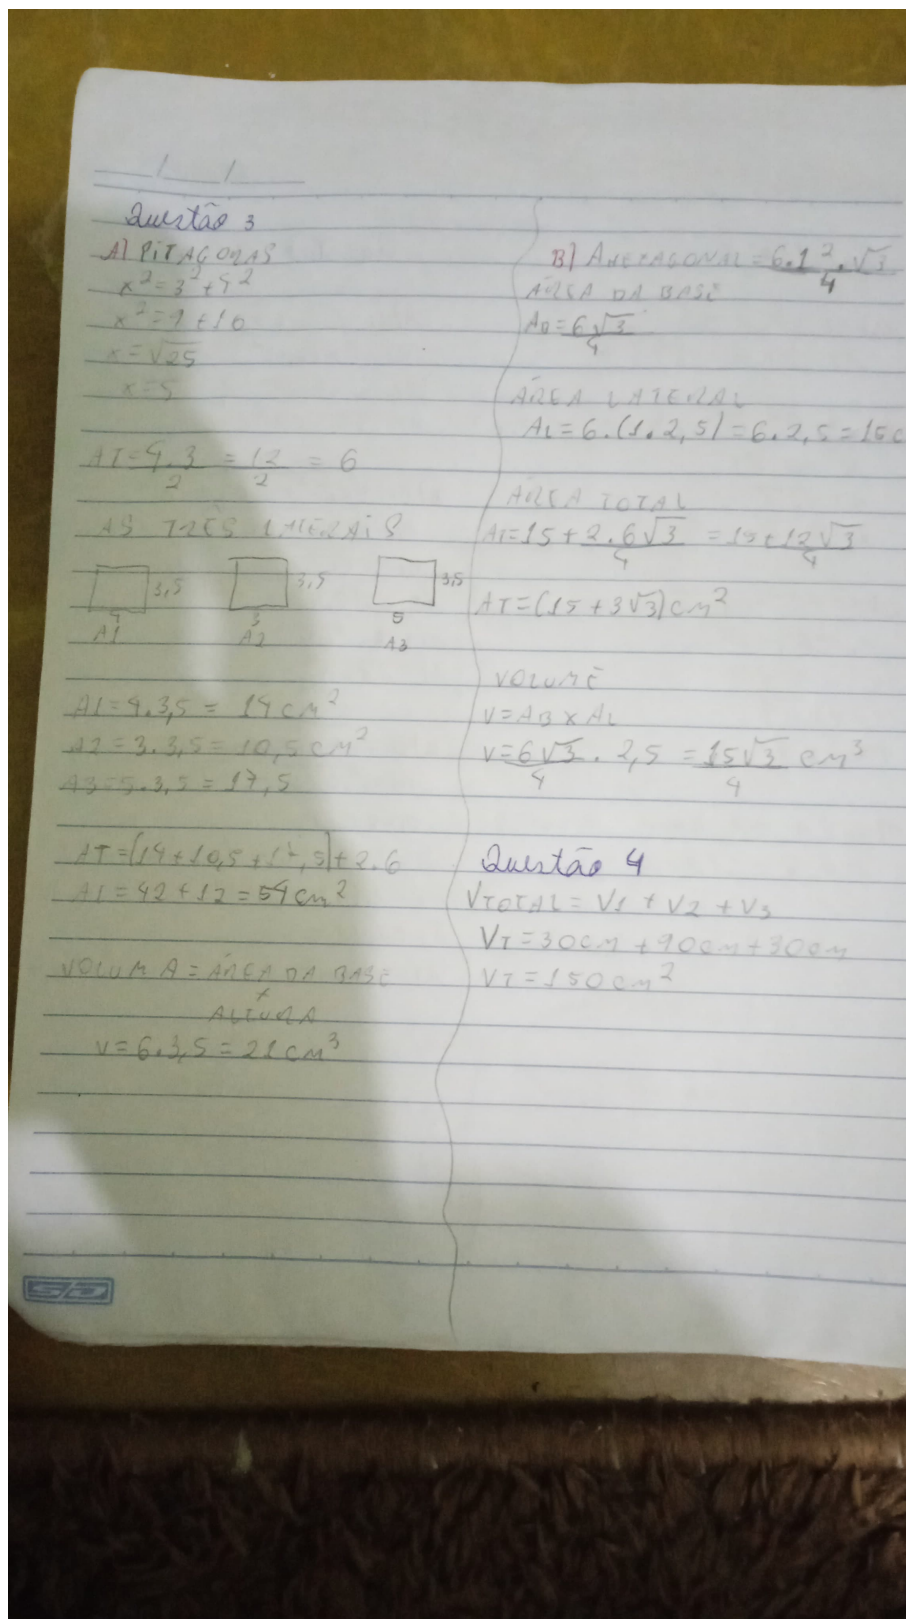 Questão 3
A) PITAGORAS
x² = 3² + 4²
x² = 9 + 16
x = √25
x = 5
AT = 4.3/2 = 12/2 = 6
AS TRÊS LATERAIS
3,5 3,5 3,5
4 3 5
A1 A2 A3
A1 = 4.3,5 = 14 cm²
A2 = 3.3,5 = 10,5 cm²
A3 = 5.3,5 = 17,5
AT = (14 + 10,5 + 17,5) + 2.6
A1 = 42 + 12 = 54 cm²
VOLUM A = ÁREA DA BASE
x
ALTURA
V = 6.3,5 = 21 cm³
B) AHEXAGONAL = 6.1².√3/4
ÁREA DA BASE
AB = 6√3/4
ÁREA LATERAL
AL = 6.(1.2,5) = 6.2,5 = 15 c
ÁREA TOTAL
AT = 15 + 2.6√3/4 = 15 + 12√3/4
AT = (15 + 3√3) cm²
VOLUME
V = AB x AL
V = 6√3/4 . 2,5 = 15√3/4 cm³
Questão 4
VTOTAL = V1 + V2 + V3
VT = 30cm + 90cm + 30cm
VT = 150 cm²